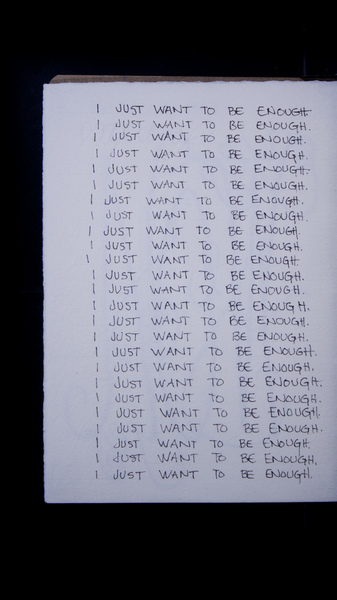 I JUST WANT TO BE ENOUGH
I JUST WANT TO BE ENOUGH.
I JUST WANT TO BE ENOUGH.
I JUST WANT TO BE ENOUGH.
I JUST WANT TO BE ENOUGH.
I JUST WANT TO BE ENOUGH.
I JUST WANT TO BE ENOUGH.
I JUST WANT TO BE ENOUGH.
I JUST WANT TO BE ENOUGH.
I JUST WANT TO BE ENOUGH.
I JUST WANT TO BE ENOUGH.
I JUST WANT TO BE ENOUGH.
I JUST WANT TO BE ENOUGH.
I JUST WANT TO BE ENOUGH.
I JUST WANT TO BE ENOUGH.
I JUST WANT TO BE ENOUGH.
I JUST WANT TO BE ENOUGH.
I JUST WANT TO BE ENOUGH.
I JUST WANT TO BE ENOUGH.
I JUST WANT TO BE ENOUGH.
I JUST WANT TO BE ENOUGH.
I JUST WANT TO BE ENOUGH.
I JUST WANT TO BE ENOUGH.
I JUST WANT TO BE ENOUGH.
I JUST WANT TO BE ENOUGH.